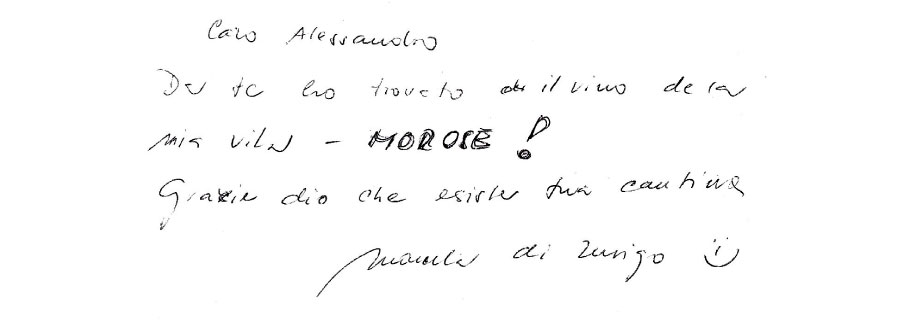 Caro Alessandro
Da te ho trovato il vino de la
mia vita - MOROSE!
Grazie dio che esiste tua cantina
Manuela di Zurigo